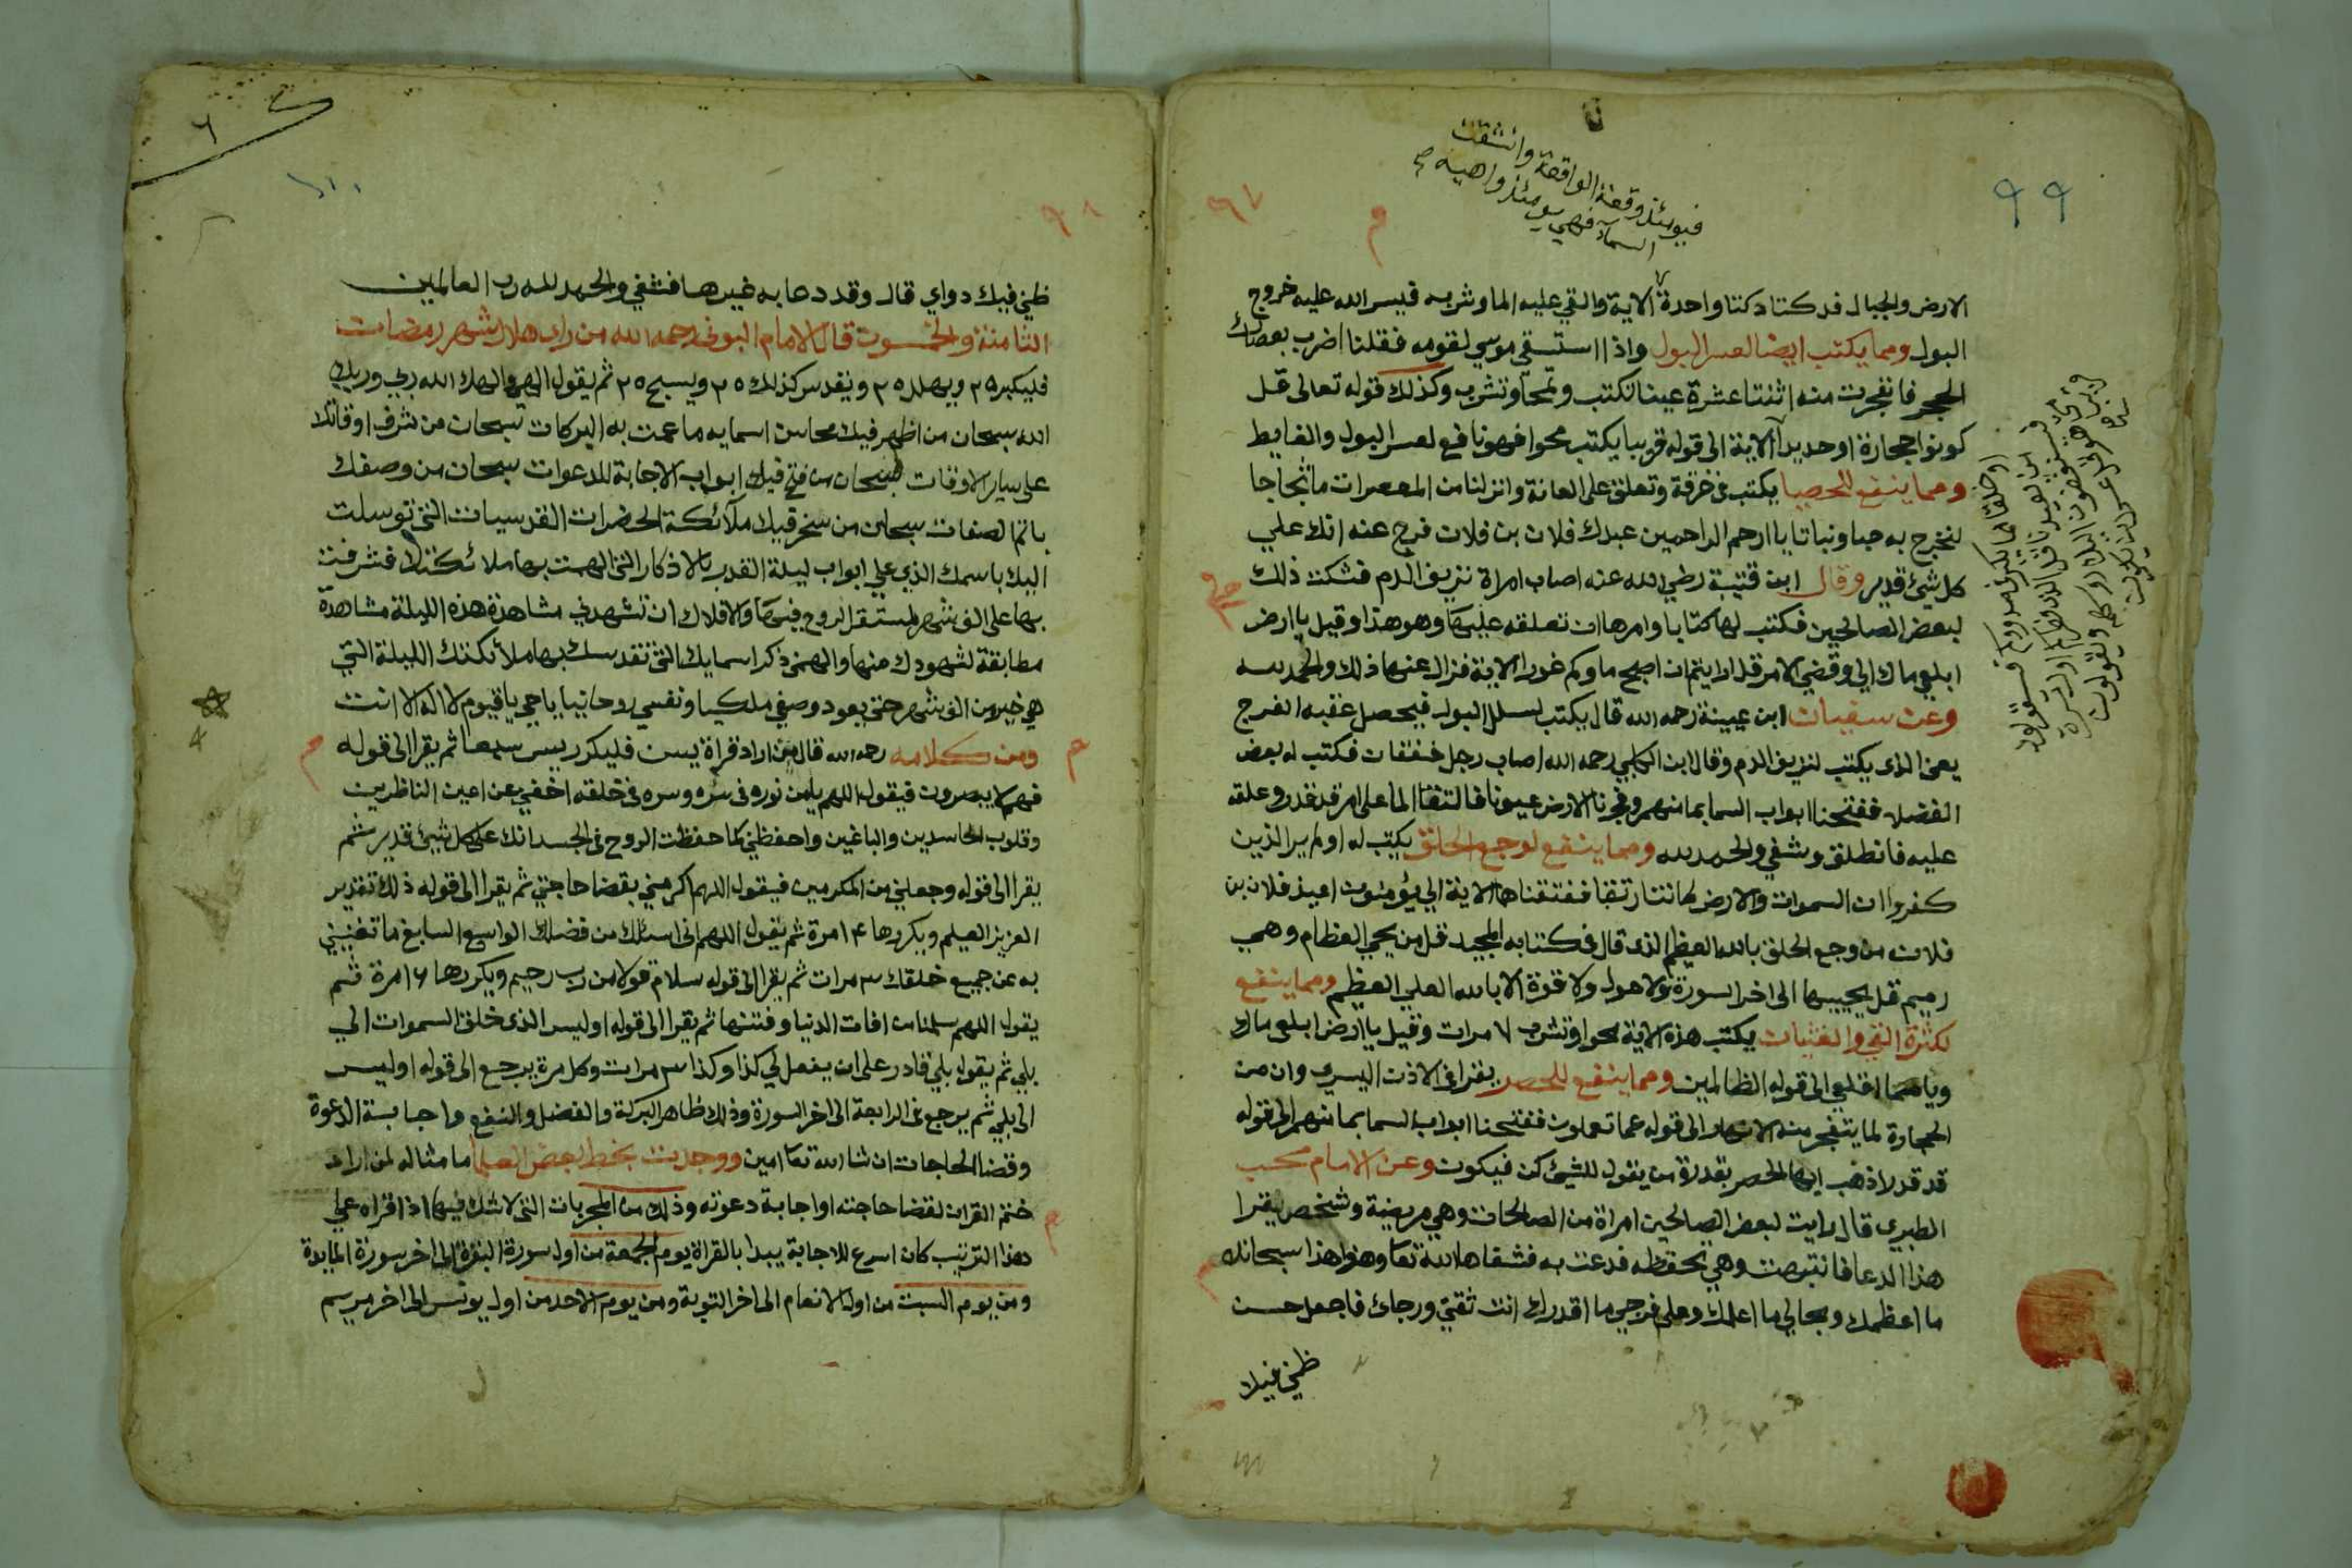 ٩٩
٩٧
فيومئذ وقعة الواقعة وانشقت
السماء فهي يومئذ واهية
م
الارض والجبال فدكتا دكتا واحدة الاية والقي عليه الما وشربه فيسر الله عليه خروج
البول ومما يكتب ايضا لعسر البول واذا استسقى موسي لقومه فقلنا اضرب بعصاك
الحجر فانفجرت منه اثنتا عشرة عينا تكتب وتمحا وتشرب وكذلك قوله تعالى قل
كونوا حجارة او حديدا الاية الى قوله قريبا يكتب محوا فهو نافع لعسر البول والغايط
ومما ينفع للحصبا يكتب في خرقة وتعلق على العانة وانزلنا من المعصرات ما ثجاجا
لنخرج به حبا ونباتا يا ارحم الراحمين عبدك فلان بن فلان فرج عنه انك علي
كل شئ قدير وقال ابن قتيبة رضي الله عنه اصاب امراة نزيف الدم فشكت ذلك
لبعض الصالحين فكتب لها كتابا وامرها ان تعلقه عليها وهو هذا وقيل يا ارض
ابلعي ماك الي وقضي الامر قل ارايتم ان اصبح ماوكم غورا الاية فزال عنها ذلك والحمد لله
وعن سفيان ابن عيينة رحمه الله قال يكتب لسلل البول فيحصل عقبه الفرج
يعني الذي يكتب لنزيف الدم وقال ابن الكلبي رحمه الله اصاب رجل خفقان فكتب له بعض
الفضلا ففتحنا ابواب السما بما منهمر وفجرنا الارض عيونا فالتقا الما على امر قد قدر وعلقه
عليه فانطلق وشفي والحمد لله ومما ينفع لوجع الحلق يكتب له اولم ير الذين
كفروا ان السموات والارض كانتا رتقا ففتقناها الاية الي يؤمنون اعيذ فلان بن
فلان من وجع الحلق بالله العظيم الذي قال في كتابه المجيد قل من يحي العظام وهي
رميم قل يحييها الى اخر السورة ولا حول ولا قوة الا بالله العلي العظيم ومما ينفع
لكثرة القي والغثيان يكتب هذه الاية محوا وتشرب ٧ مرات وقيل يا ارض ابلعي ماك
ويا سما اقلعي الى قوله الظالمين ومما ينفع للحصر يقرا في الاذن اليسري وان من
الحجارة لما يتفجر منه الانهار الى قوله عما تعملون ففتحنا ابواب السما بما منهمر الى قوله
قد قدر لا ذهب ايها الحصر بقدرة من يقول للشئ كن فيكون وعن الامام محب
الطبري قال رايت لبعض الصالحين امراة من الصالحات وهي مريضة وشخص يقرا
هذا الدعا فانتبهت وهي تحفظه فدعت به فشفاها الله تعا وهو هذا سبحانك
ما اعظمك وبحالي ما اعلمك وعلى فرجي ما اقدرك انت ثقتي ورجاي فاجعل حسن
ظني فيك
او خلقا مما يكبر في صدوركم فسيقولون
من يعيدنا قل الذي فطركم اول مرة
فسينغضون اليك روسهم ويقولون
متى هو قل عسى ان يكون
٦
٩٨
ظني فيك دواي قال وقد دعا به غيرها فشفي والحمد لله رب العالمين
الثامنة والخمسون قال الامام البوني رحمه الله من راى هلال شهر رمضان
فليكبر ٢٥ ويهلل ٢٥ ويقدس كذلك ٢٥ ويسبح ٢٥ ثم يقول الهي والهك الله ربي وربك
الله سبحان من اظهر فيك محاسن اسمايه ما عمت به البركات سبحان من شرف اوقاتك
على ساير الاوقات سبحان من فتح فيك ابواب الاجابة للدعوات سبحان من وصفك
باتم الصفات سبحان من سخر فيك ملائكة الحضرات القدسيات التي توسلت
اليك باسمك الذي علي ابواب ليلة القدر بالاذكار التي الهمت بها ملائكتك فشرفت
بها على الف شهر لمستقر الروح فيها والافلاك ان تشهدني مشاهدة هذه الليلة مشاهدة
مطابقة لشهودك منها والهمني ذكر اسمايك التي تقدسك بها ملائكتك الليلة التي
هي خير من الف شهر حتى يعود وصفي ملكيا ونفسي روحانيا يا حي يا قيوم لا اله الا انت
م ومن كلامه رحمه الله قال من اراد قراة يس فليكرر يس سبعا ثم يقرا الى قوله م
فهم لا يبصرون فيقول اللهم يا من نوره في سره وسره في خلقه اخفني عن اعين الناظرين
وقلوب الحاسدين والباغين واحفظني كما حفظت الروح في الجسد انك على كل شئ قدير ثم
يقرا الى قوله وجعلني من المكرمين فيقول اللهم اكرمني بقضا حاجتي ثم يقرا الى قوله ذلك تقدير
العزيز العليم ويكررها ١٤ مرة ثم يقول اللهم اني اسئلك من فضلك الواسع السابغ ما تغنيني
به عن جميع خلقك ٣ مرات ثم يقرا الى قوله سلام قولا من رب رحيم ويكررها ١٦ مرة ثم
يقول اللهم سلمنا من افات الدنيا وفتنها ثم يقرا الى قوله اوليس الذي خلق السموات الي
بلي ثم يقول بلي قادر على ان يفعل لي كذا وكذا ٣ مرات وكل مرة يرجع الى قوله اوليس
الى بلي ثم يرجع في الرابعة الى اخر السورة وذلك ظاهر البركة والفضل والنفع واجابة الدعوة
وقضا الحاجات ان شا الله تعا امين ووجدت بخط بعض العلما ما مثاله لمن اراد
ختم القران لقضا حاجته او اجابة دعوته وذلك من المجربات التي لا شك فيها اذا قراه علي
هذا الترتيب كان اسرع للاجابة يبدا بالقراة يوم الجمعة من اول سورة البقرة الى اخر سورة المايدة
ومن يوم السبت من اول الانعام الى اخر التوبة ومن يوم الاحد من اول يونس الى اخر مريم